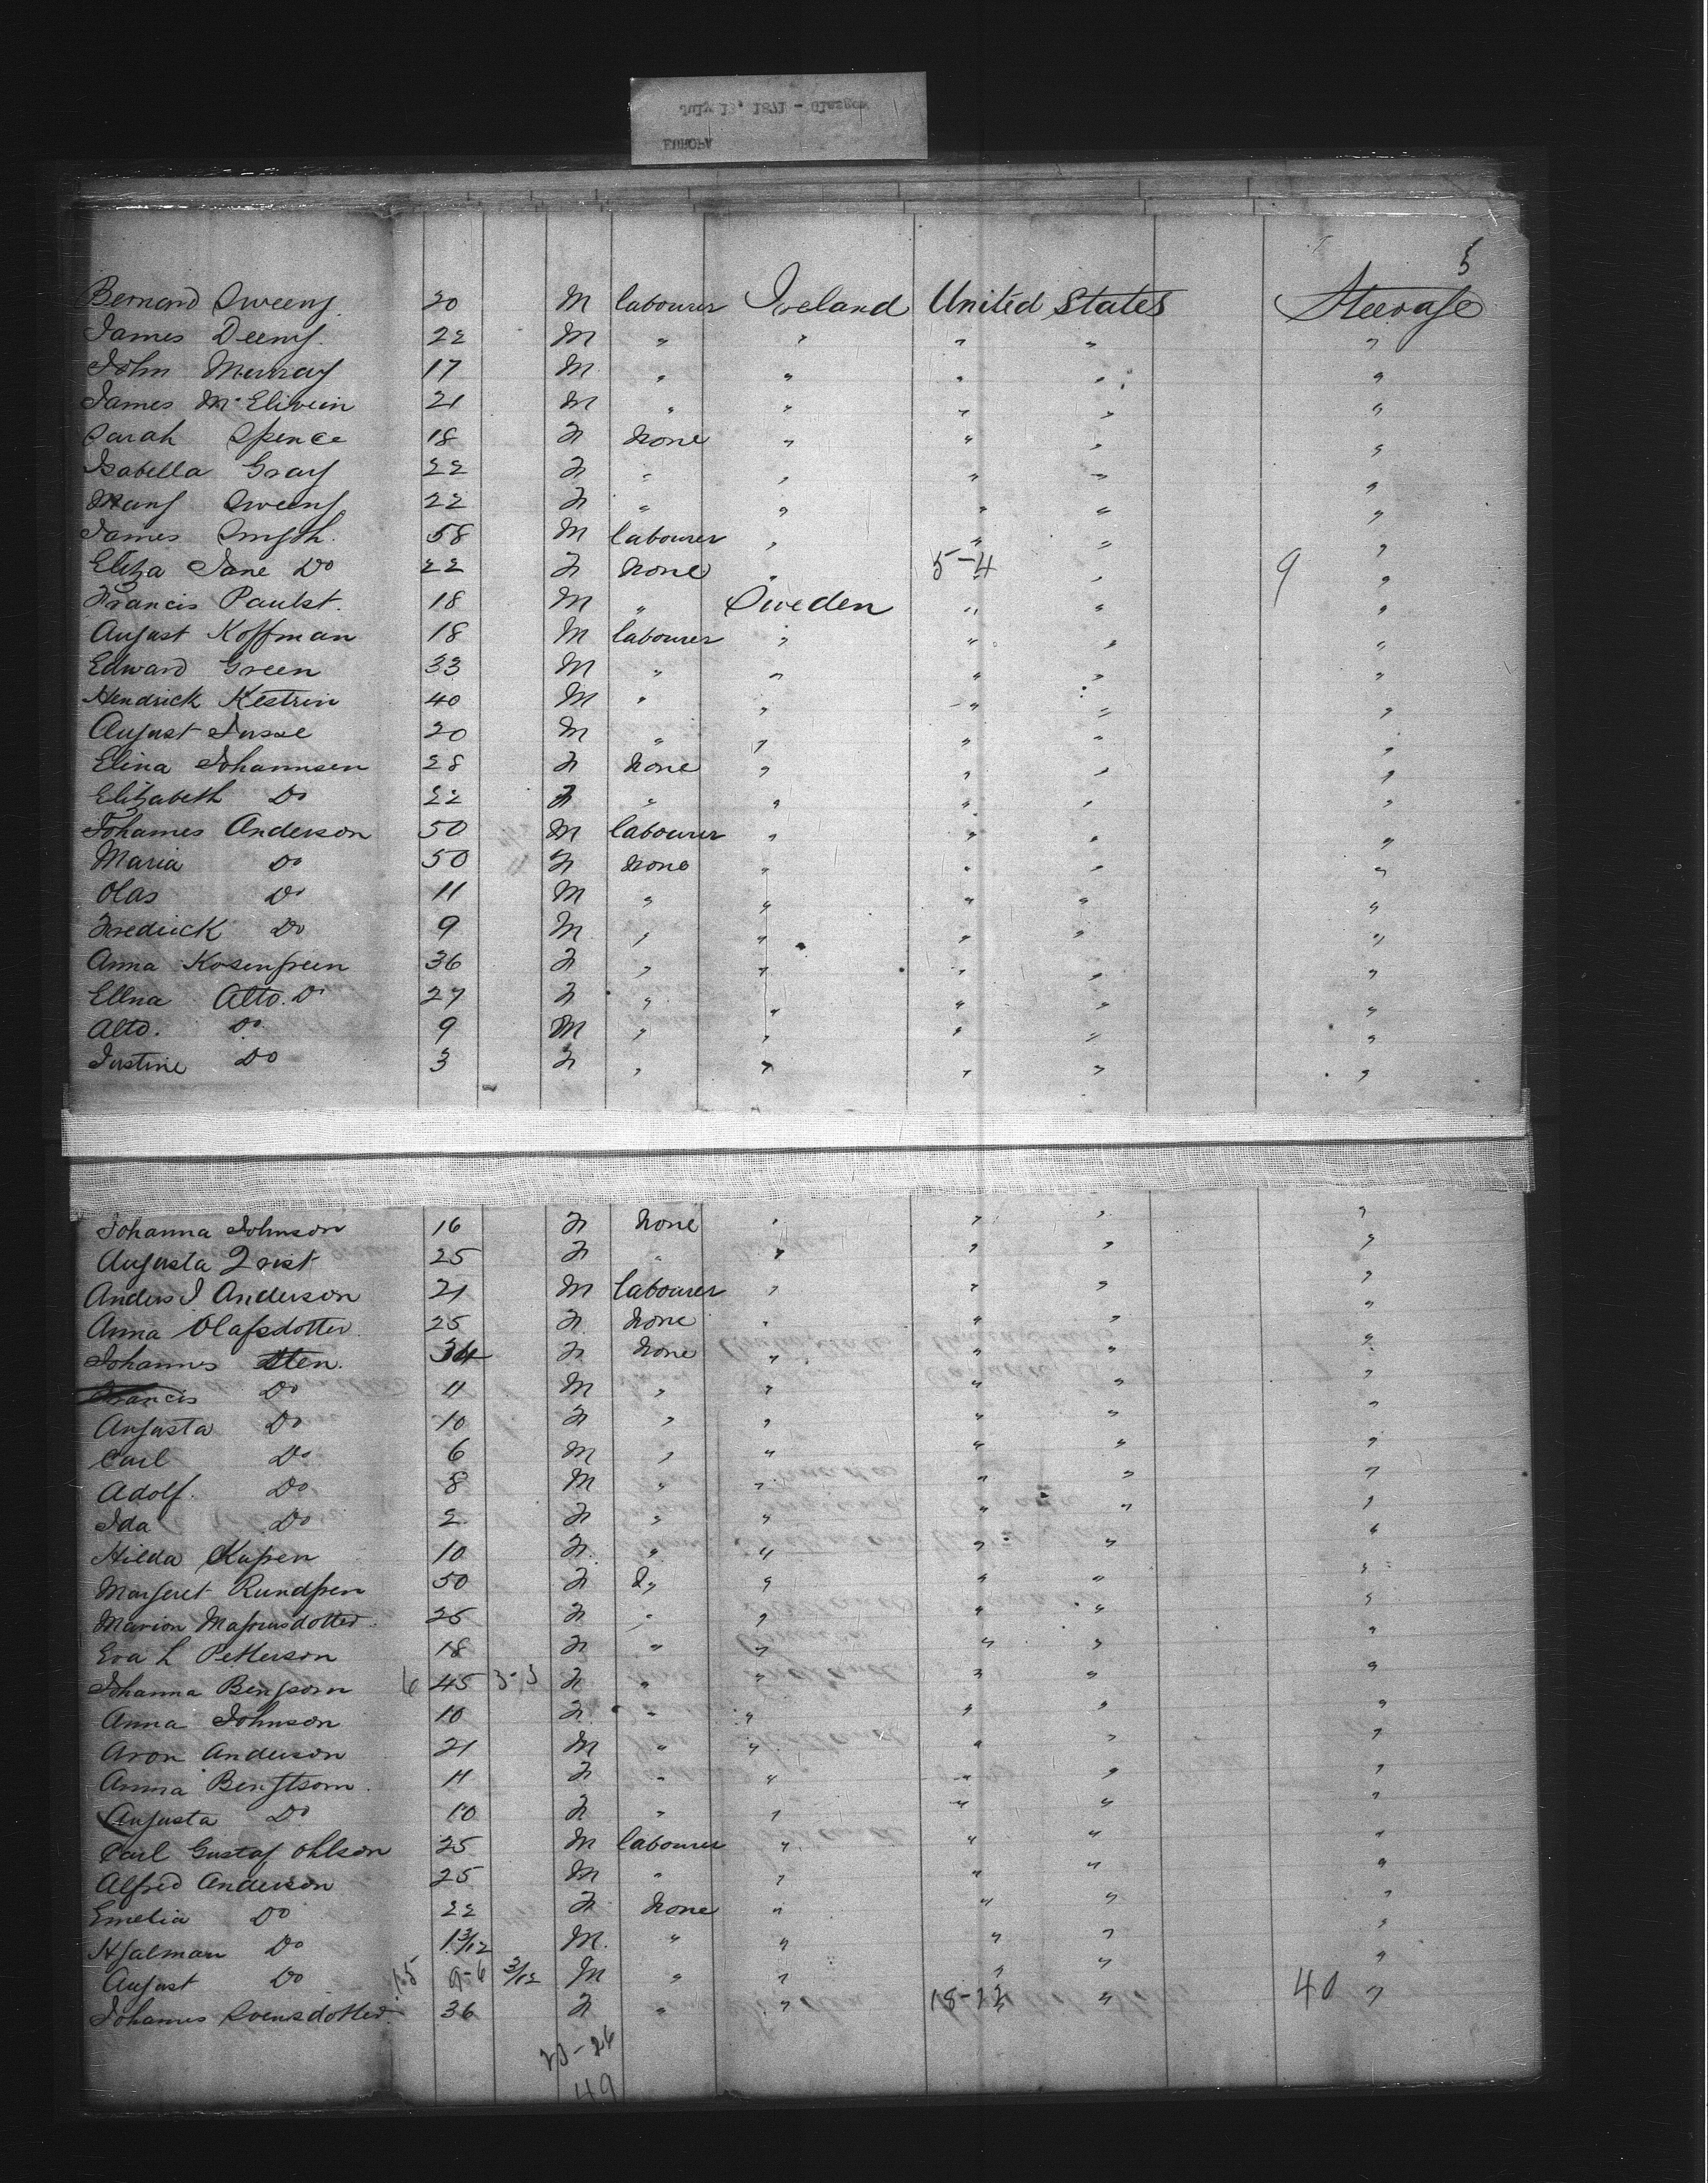 July 13, 1871 - Glasgow
EUROPA
5
Bernard Sweeny 20 M labourer Ireland United States Steerage
James Deeny 22 M " " " " "
John Murray 17 M " " " " "
James McElwein 21 M " " " " "
Sarah Spence 18 F None " " " "
Isabella Gray 22 F " " " " "
Mary Sweeny 22 F " " " " "
James Smyth 58 M labourer " " " "
Eliza Jane Do 22 F None " 5-4 " " 9 "
Francis Paulst. 18 M " Sweden " " "
August Koffman 18 M labourer " " " "
Edward Green 33 M " " " " "
Hendrick Kestrin 40 M " " " " "
August Jusse 20 M " " " " "
Elina Johannsen 28 F None " " " "
Elizabeth Do 22 F " " " " "
Johannes Anderson 50 M labourer " " " "
Maria Do 50 F None " " " "
Olas Do 11 M " " " " "
Fredrick Do 9 M " " " " "
Anna Rosengreen 36 F " " " " "
Ellna Alto. Do 27 F " " " " "
Alto. Do 9 M " " " " "
Justine Do 3 F " " " " "
Johanna Johnson 16 F None " " " "
Augusta Qrist 25 F " " " " "
Anders J Anderson 21 M labourer " " " "
Anna Olafsdotter 25 F None " " " "
Johannes Sten. 34 F None " " " "
Francis Do 11 M " " " " "
Augusta Do 10 F " " " " "
Carl Do 6 M " " " " "
Adolf. Do 8 M " " " " "
Ida Do 2 F " " " " "
Hilda 10 F " " " " "
Margeret Rundgren 50 F " " " " "
Marion Magnusdotter 25 F " " " " "
Eva L Petterson 18 F " " " " "
Johanna Bengsorn 6 45 3-3 F " " " " "
Anna Johnson 10 F " " " " "
Aron Anderson 21 M " " " " "
Anna Bengtsorn 11 F " " " " "
Augusta Do 10 F " " " " "
Carl Gustaf Ohlson 25 M labourer " " " "
Alfred Anderson 25 M " " " " "
Emelia Do 22 F None " " " "
Hjalman Do 1 3/12 M. " " " " "
August Do 15 9-6 3/12 M " " " " "
Johannes Svensdotter 36 F " " 18-22 " 40 "
23-26
49